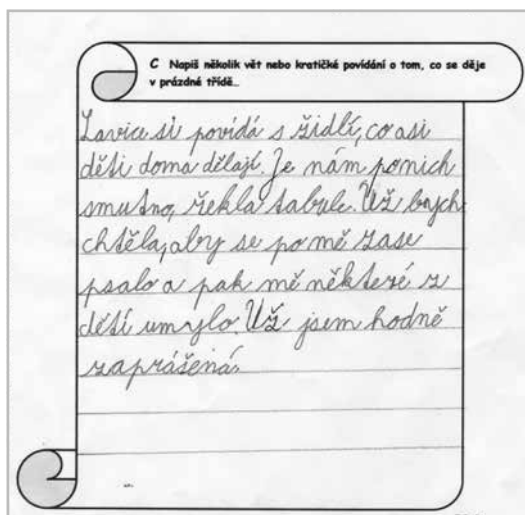 C Napiš několik vět nebo kratičké povídání o tom, co se děje
v prázdné třídě...
Lavice si povídá s židlí, co asi
děti doma dělají. Je nám po nich
smutno, řekla tabule. Už bych
chtěla, aby se po mě zase
psalo a pak mě některé z
dětí umylo. Už jsem hodně
zaprášená.